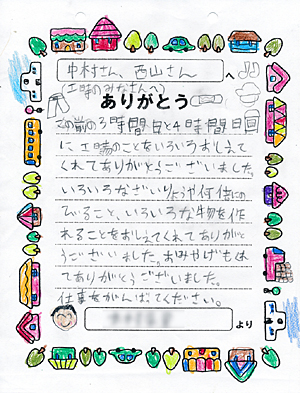 中村さん、西山さん
へ
(工場のみなさんへ)
ありがとう
この前の3時間目と4時間目
に工場のことをいろいろおしえ
てくれてありがとうございました。
いろいろなざいりょうや何
でること、いろいろな物を作
れることをおしえてくれてありがと
うございました。おみやげもくれ
てありがとうございました。
仕事をがんばってください。
より